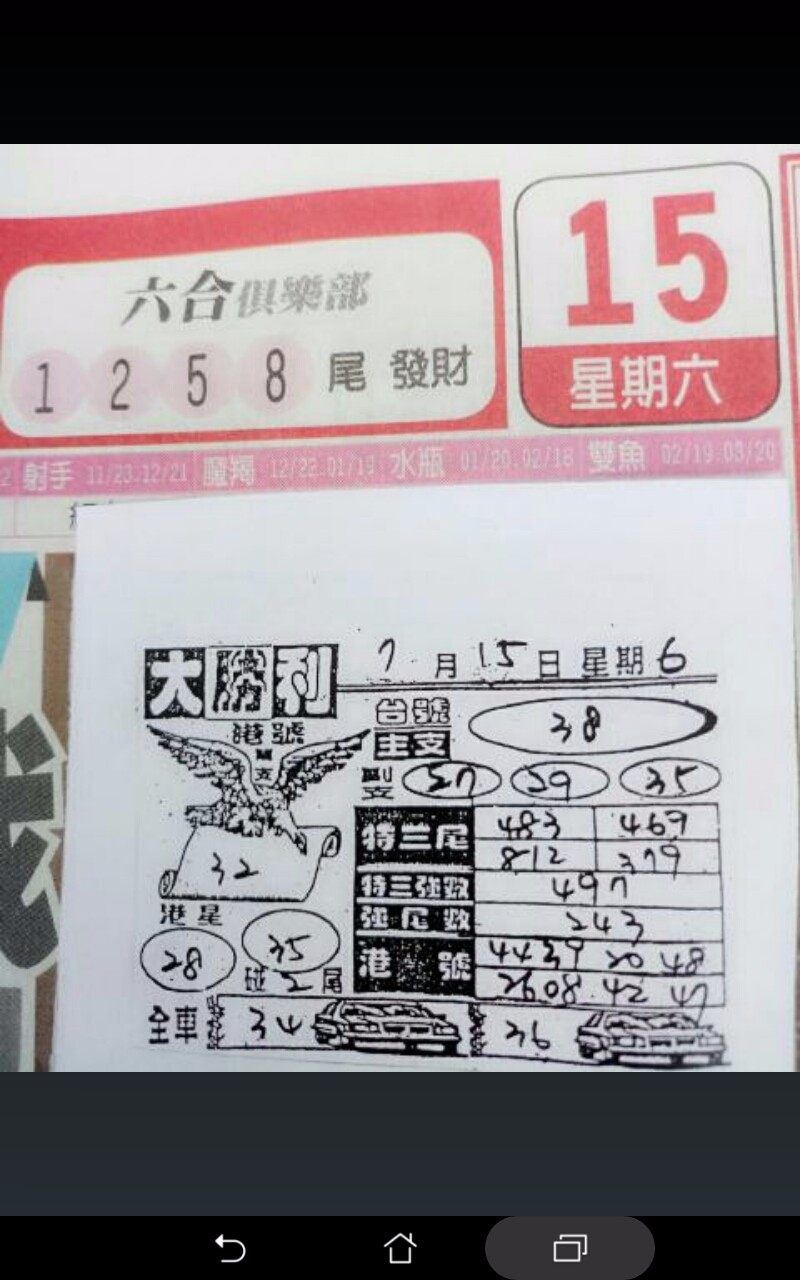 六合俱樂部
1 2 5 8 尾 發財
15
星期六
射手 11/23.12/21 魔羯 12/22.01/19 水瓶 01/20.02/18 雙魚 02/19.03/20
大勝利
7月15日星期6
港號
台號 38
主支
副支 27 29 35
32
特三尾 483 469
812 379
特三強數 497
強尾數 243
港星
28 35
港號 4439 20 48
2608 42 47
尾
全車 34 26